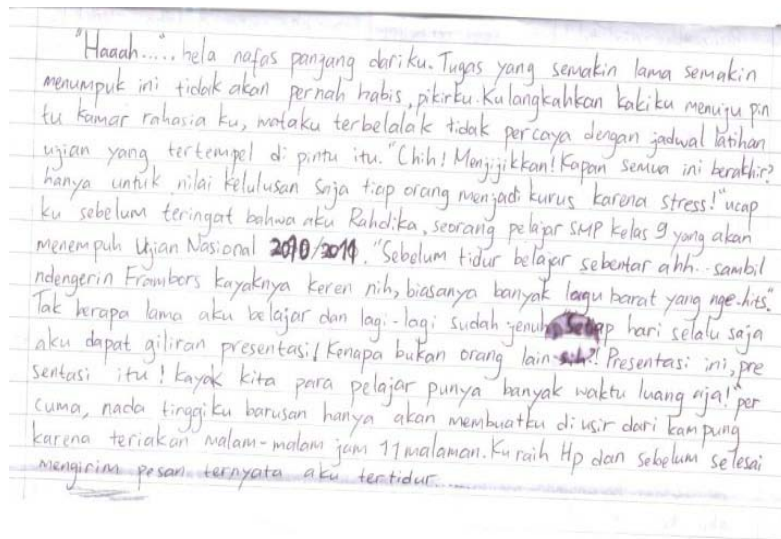 "Haaah....., hela nafas panjang dariku. Tugas yang semakin lama semakin
menumpuk ini tidak akan pernah habis, pikirku. Ku langkahkan kakiku menuju pin
tu kamar rahasia ku, mataku terbelalak tidak percaya dengan jadwal latihan
ujian yang tertempel di pintu itu. "Chih! Menjijikkan! Kapan semua ini berakhir?
hanya untuk nilai kelulusan saja tiap orang menjadi kurus karena stress!" ucap
ku sebelum teringat bahwa aku Rahdika, seorang pelajar SMP kelas 9 yang akan
menempuh Ujian Nasional 2010/2011. "Sebelum tidur belajar sebentar ahh... sambil
ndengerin Frambors kayaknya keren nih, biasanya banyak lagu barat yang nge-hits".
Tak berapa lama aku belajar dan lagi-lagi sudah jenuh. "Setiap hari selalu saja
aku dapat giliran presentasi! Kenapa bukan orang lain sih?! Presentasi ini, pre
sentasi itu! Kayak kita para pelajar punya banyak waktu luang aja!" per
cuma, nada tinggiku barusan hanya akan membuatku diusir dari kampung
karena teriakan malam-malam jam 11 malaman. Ku raih Hp dan sebelum selesai
mengirim pesan ternyata aku tertidur.....